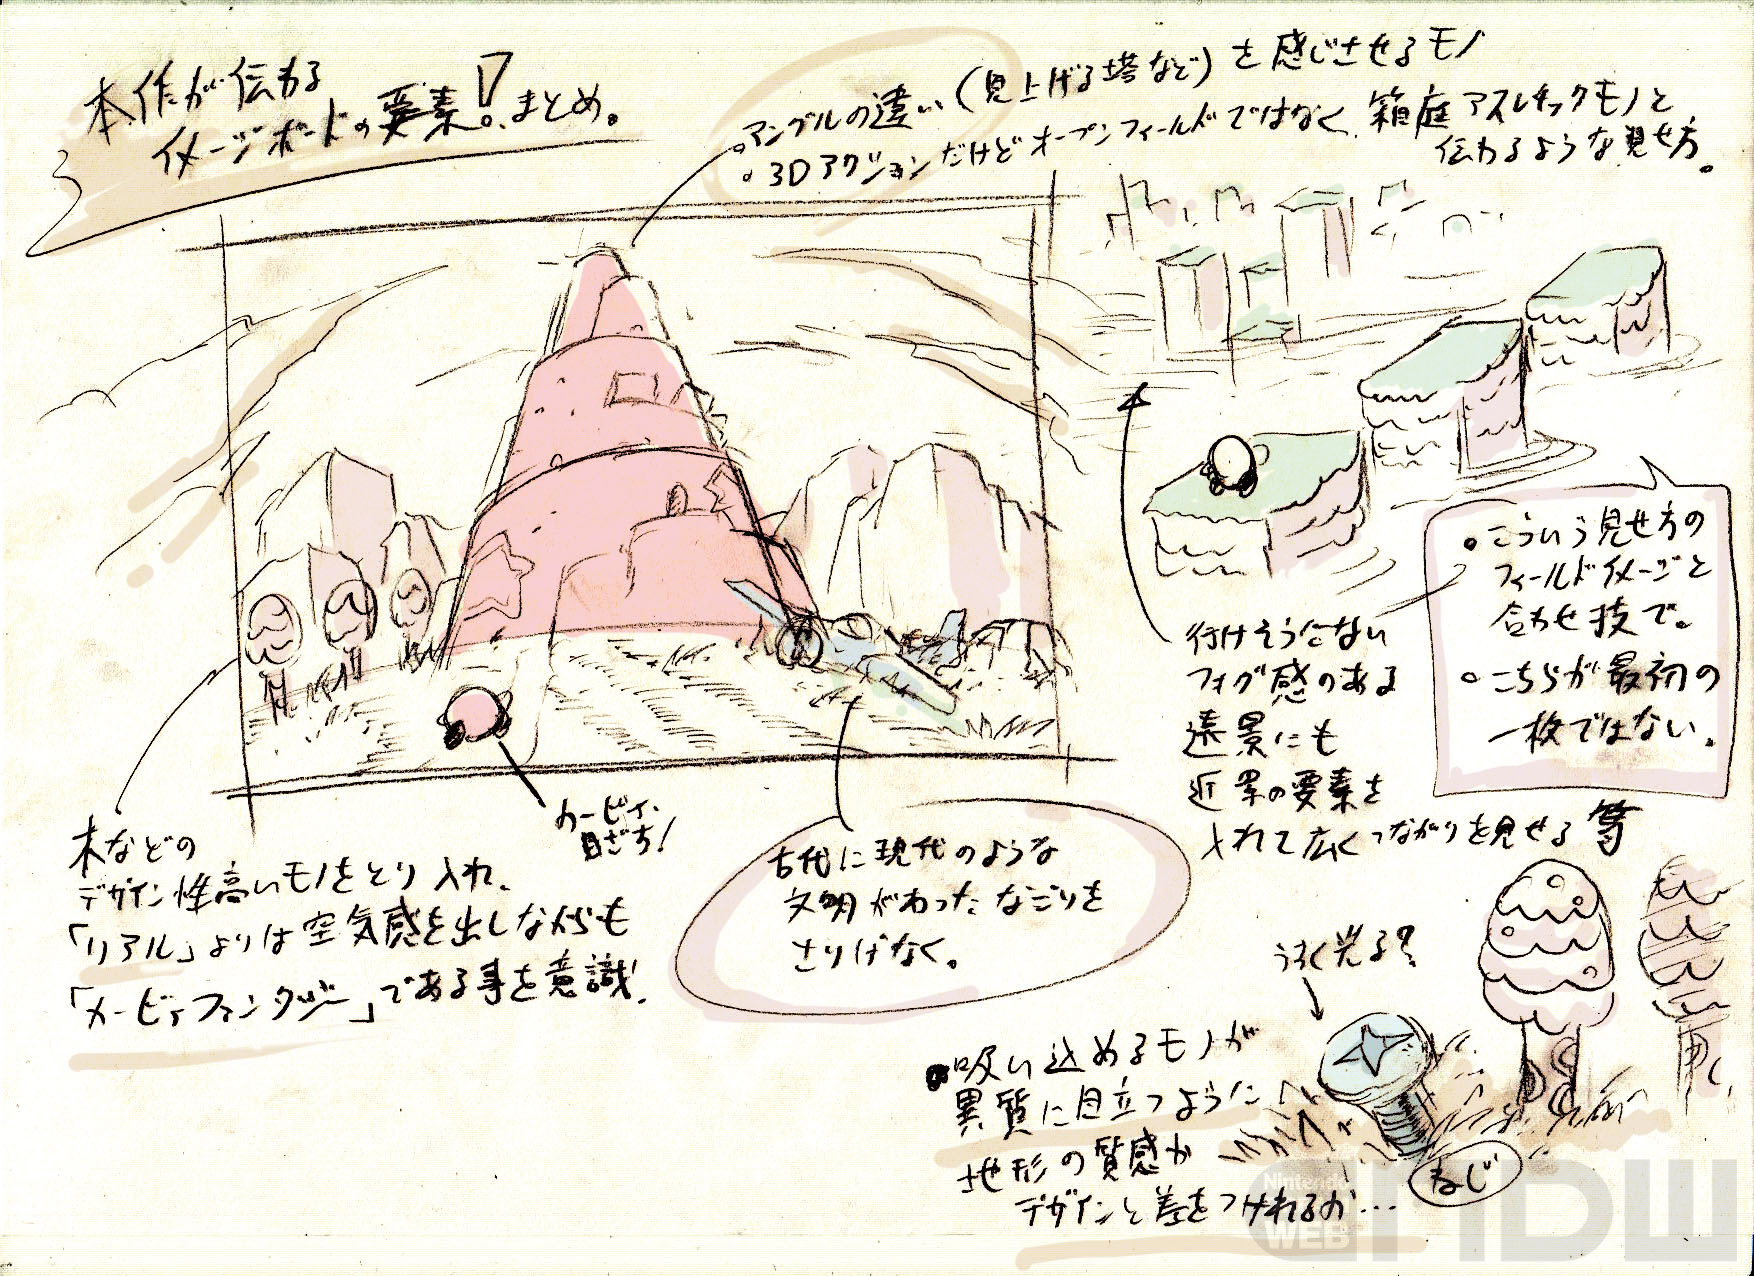 本作が伝わる
イメージボードの要素!まとめ。
。アングルの違い(見上げる塔など)を感じさせるモノ
。3Dアクションだけどオープンフィールドではなく、箱庭アスレチックモノと
伝わるような見せ方。
。こういう見せ方の
フィールドイメージと
合わせ技で。
。こちらが最初の
一枚ではない。
行けそうにない
フォグ感のある
遠景にも
近景の要素を
入れて広くつながりを見せる 等
カービィ
目ざち!
木などの
デザイン性高いモノをとり入れ、
「リアル」よりは空気感を出しながらも
「カービィファンタジー」である事を意識!
古代に現代のような
文明がわったなごりを
さりげなく。
うすく光る?
・吸い込めるモノが
異質に目立つように
地形の質感か
デザインと差をつけれるか…
ねじ
Nintendo
WEB
NDW